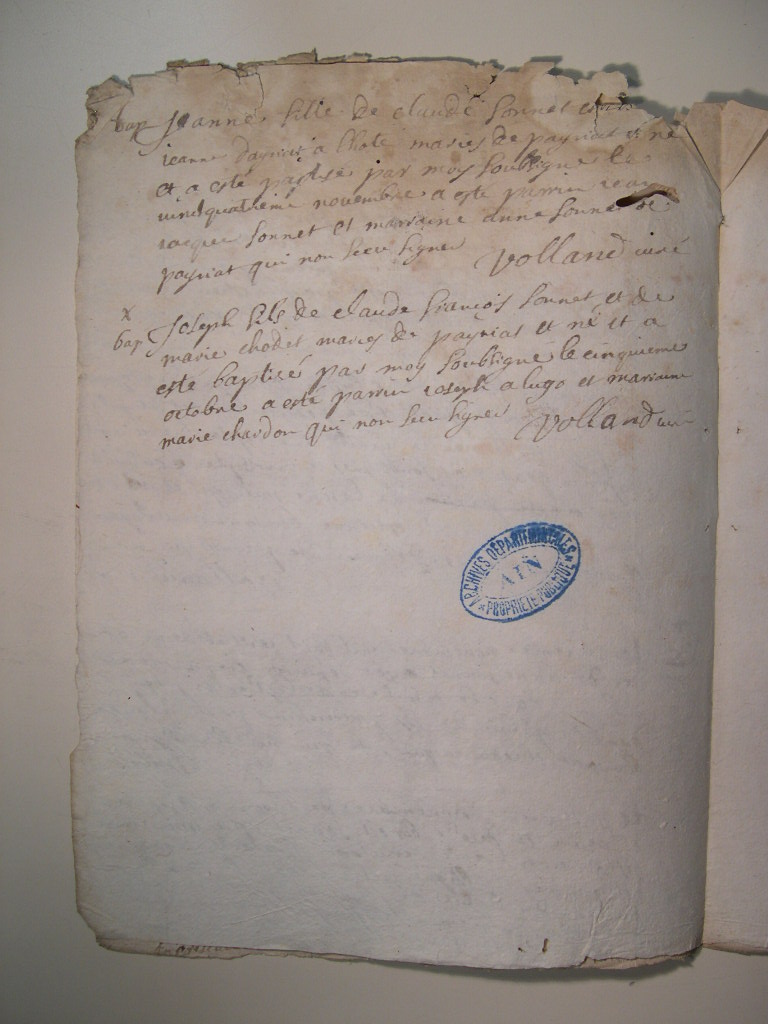 bap Jeanne fille de claude sonnet et de
jeanne mariés de payriat et né
et a esté par moy soubsigné le
vindquatrieme novembre a esté parrin jean
jacque sonnet et marraine anne sonnet de
payriat qui non sceu signer Volland curé
x
bap Joseph fils de claude francois sonnet et de
marie chodet mariés de payriat et né et a
esté baptisé par moy soubsigné le cinquieme
octobre a esté parrin joseph alugo et marraine
marie chardon qui non sceu signer Volland curé
ARCHIVES DÉPARTEMENTALES
AIN
* PROPRIÉTÉ PUBLIQUE *